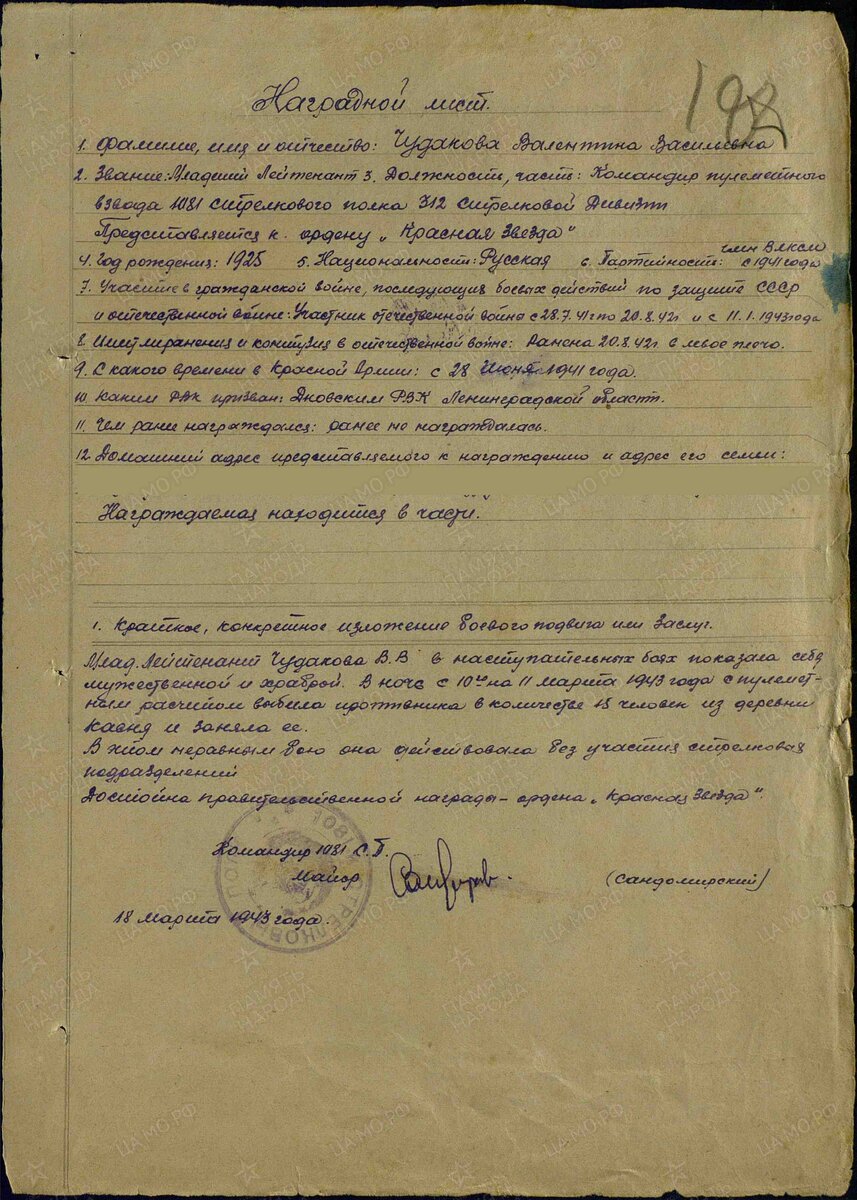 198
Наградной лист.
1. Фамилие, имя и отчество: Чудакова Валентина Васильевна
2. Звание: Младший Лейтенант 3. Должность, часть: Командир пулеметного
взвода 1081 стрелкового полка 312 Стрелковой Дивизии
Представляется к ордену „Красная Звезда“
4. Год рождения: 1925 5. Национальность: Русская 6. Партийность: член ВЛКСМ
с 1941 года
7. Участие в гражданской войне, последующих боевых действий по защите СССР
и отечественной войне: Участник отечественной войне с 28.7.41 г по 20.8.42 г и с 11.1.1943 года
8. Имеет ли ранения и контузия в отечественной войне: Ранена 20.8.42 г в левое плечо.
9. С какого времени в Красной Армии: с 28 Июня 1941 года.
10. Каким РВК призван: Дновским РВК Ленинградской области.
11. Чем ранее награждался: ранее не награждалась.
12. Домашний адрес представляемого к награждению и адрес его семьи:
Награждаемая находится в части.
1. Краткое, конкретное изложение боевого подвига или Заслуг.
Млад. Лейтенант Чудакова В.В в наступательных боях показала себя
мужественной и храброй. В ночь с 10 на 11 марта 1943 года с пулемет-
ным расчётом выбила противника в количестве 15 человек из деревни
и заняла ее.
В этом неравным бою она действовала без участия стрелковых
подразделений
Достойна правительственной награды - ордена „Красная Звезда“.
Командир 1081 С.П.
Майор
(Сандомирский)
18 марта 1943 года.
ЦАМО.РФ
ПАМЯТЬ НАРОДА